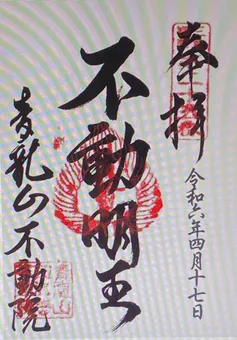 奉拝
令和六年四月十七日
不動明王
青龍山不動院